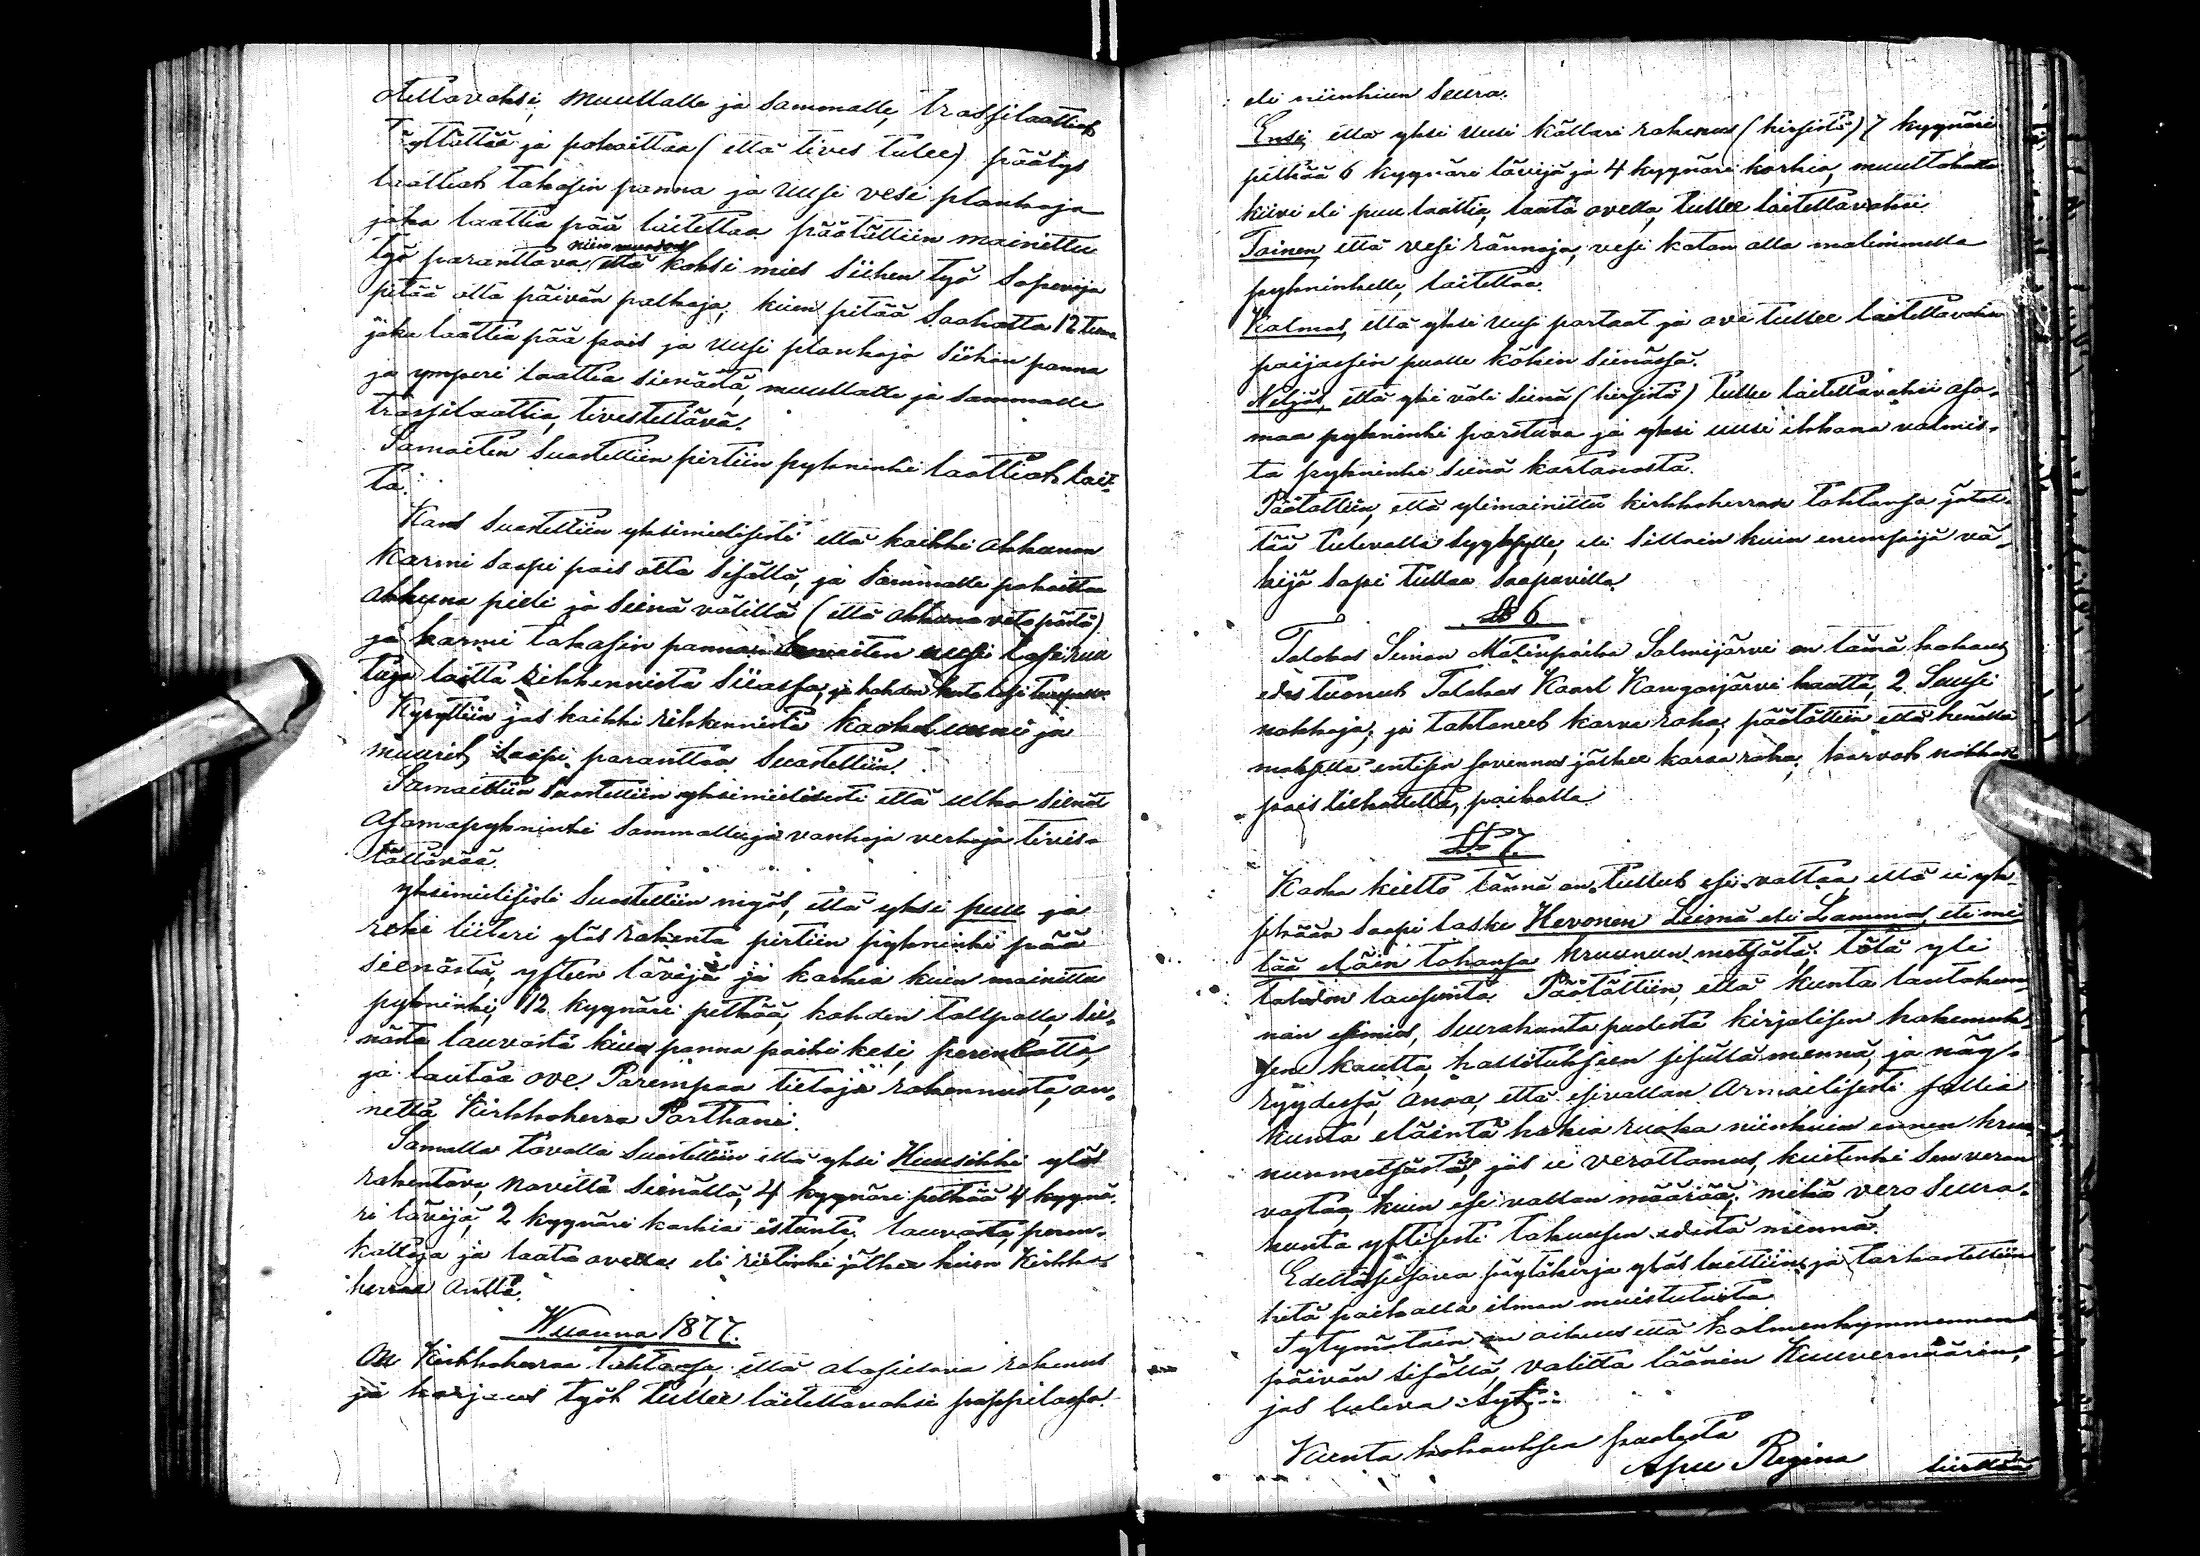 otettavaksi, muullalle ja sammalle, trossilaattiat
Täyttättää ja pohaittaa (että tives tulee) päätys
laattiat takasin panna ja uusi vesi plankoja
joka laattia pää laitettaa päätättiin mainittu
työ paranttava niin että koksi mies siihen työ sopevija
pitää olla päivän palkoja, kuin pitää saahatta 12 tuu
joka laattia pää pois ja uusi plankoja siihen panna
ja ymperi laattia sienästä, muullalle ja sammalle
trossilaattia, tivestettävä.
Samaiten suostettiin pirtiin pykninki laattiat lait-
ta.
Kans suostettiin yksimielisesti että kaikki akkunan
karmi saapi pois otta sisältä, ja sammalle pohaittaa
akkuna pieli ja seinä välillä (että akkuna veto päätä)
ja karmi takasin panna, samaiten uusi lasi ruu
tuja laitta rikkennistä siiassa, ja kahden
Kysyttiin jos kaikki rikkennistä kaakel uuni ja
muurit saapi paranttaa. Suostettiin.
Samaittiin suostettiin yksimielisesti että ulko sienät
asomapykninki sammalle ja vanhoja verkoja tivis-
tättävää.
yksimielisesti suostettiin myös, että yksi puu ja
roki liiteri ylös rakenta pirtiin pykninki pää
sienästä, yhteen lävijä ja korkia kuin mainittu
pykninki, 12 kyynäri pitkää, kahden tallpalla, sie-
nästa lauvasta kuin panna paiki kesi, perenkatto,
ja lautaa ove. Parempaa tietoja rakennusta, an-
netta Kirkkoherra Parthani.
Samalla tavalla suostettiin että yksi Huusikki ylös
rakentava, navittä sienällä, 4 kyynäre pitkää 4 kyynä-
ri lävijä, 2 kyynäri korkia istunta lauvasta, peren-
kattoja ja laata ovella eli ritinki jälkee kuin Kirkko-
herraa antta.
Wuonna 1877.
On Kirkkoherraa tahtonsa, että alasietava rakenus
ja korjaus työt tullee läitettäväksi pappilassa.
eli niinkuun seura.
Ensi, että yksi uusi källari rakenus (hirsistä) 7 kyynäri
pitkää 6 kyynäri lävijä ja 4 kyynäri korkia, multakatto
kiivi eli puu laattia, laatä ovella, tullee laitettavaksi.
Toinen, että vesi rännoja, vesi katon alla malimmalla
pykninkille, laitettaa.
Kolmas, että yksi uusi portaat ja ovi tullee laitettavaksi
paijassin puolle kökin sienässä.
Neljäs, että yksi väli sienä (hirsistä) tullee laitettavaksi aso-
maa pykninki porstuva ja yksi uusi ikkana valmis-
ta pykninki sienä kartanosta.
Päätättiin, että ylimainittu kirkkoherran tahtonsa jätet-
tää tulevalla syyksylle, eli silloin kuin enempäijä vä-
kijä sopi tullaa saapavilla.
§ 6
Talokas Seimon Matinpoika Salmijärvi on tämä kokous
edes tuonut Talokas Kaarl Kangosjärvi kautta, 2 Suusi
nakkoja, ja tahtoneet karva raha; päätättiin että henällä
maksetta entisen sovennus jälkee karva raha, karvat nakkast
pois leikattetta, paikalla.
§ 7.
Koska kielto tänne on tullut esivaltaa, että ei yk-
sikään saapi laske Hevonen Leimä eli Lammas, eli mi
tää eläin tahansa kruunun metsästä, tätä yli
talodon lausunta. Päätättiin, että kunta lautakun-
nan esimies, seurakunta puolesta kirjalisen hakemuk-
sen kautta, hallituksen sisällä mennä, ja näy-
ryydessä anoa, että esivallan Armailisesti sallia
kunta eläintä hakia ruoka niinkuin ennen kru-
nunmetsästä, jos ei verottamus, kuitenki sen veran
vastaa, kuin esi vallan määrää, mikä vero seura-
kunta yhtisesti takuusen edestä mennä.
Edelläseisova pöytäkirja ylös luettiin, ja tarkastettiin
hetä paikalla ilman muistutusta
Tytymätäin on aikuus että kolmenkymmennen
päivän sisällä, valitta läänin Kuuvernöörin,
jos luleva syt.
Kunta kokouksen puolesta
Apu Regina